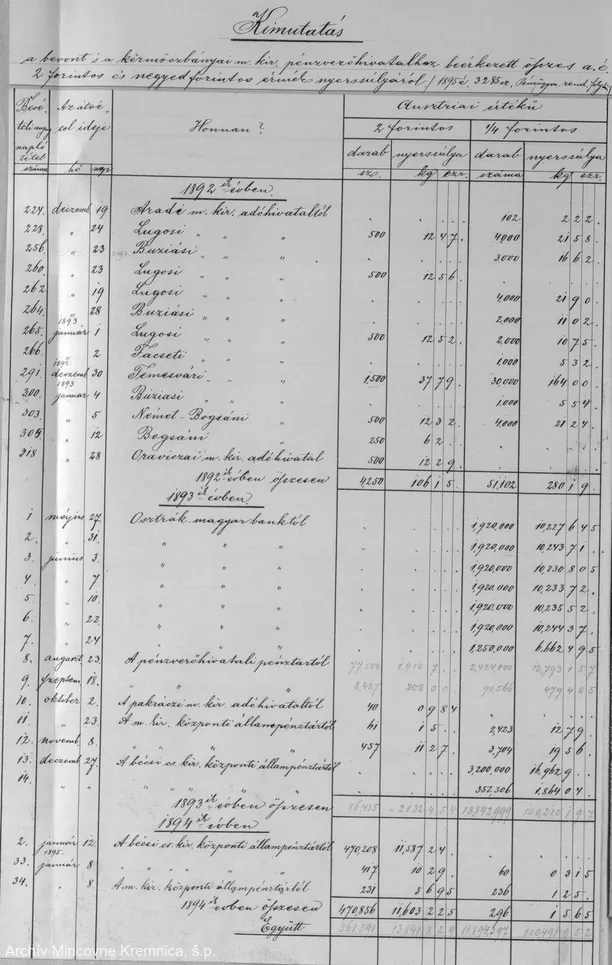 Kimutatás
a bevont s a körmöczbányai m. kir. pénzverőhivatalhoz beérkezett összes a. é.
2 forintos és negyedforintos érmék nyerssúlyáról / 1895 é. 3285 sz. Pénzügym. rend. folyt.
Ausztriai értékű
Honnan?
2 forintos 1/4 forintos
darab nyerssúlya darab nyerssúlya
száma hó nap kg ezr. száma kg ezr.
1892 ik évben.
224. deczemb 19 Aradi m. kir. adóhivataltól 102 222
228. " 24 Lugosi " " 500 1247 4,000 2158
256. " 23 Buziási " " 3,000 1662
260. " 23 Lugosi " " 500 1256
262 " 19 Lugosi " " 4,000 2190
264. " 28 Buziási " " 2,000 1102
265. 1893 január 1 Lugosi " " 500 1252 2,000 1075
266. " 2 Facseti " " 1,000 532
291. 1892 deczemb 30 Temesvári " " 1,500 3779 30,000 16400
300. 1893 január 4 Buziasi " " 1,000 554
303. " 5 Német-Bogsáni " 500 1232 4,000 2124
305. " 12 Bogsáni " 250 62
318 " 28 Oraviczai m. kir. adóhivatal 500 1229
1892 ik évben összesen 4250 10615 51,102 28019
1893 ik évben
1 május 27 Osztrák-magyar banktól 1,920,000 10,227645
2. " 31. " " 1,920,000 10,24371
3. június 3. " " 1,920,000 10,230805
4. " 7 " " 1,920,000 10,23372
5. " 10. " " 1,920,000 10,23552
6. " 22. " " 1,920,000 10,24437
7. " 24 " " 1,250,000 6,662495
8. august 23. A pénzverőhivatali pénztártól 77,500 1,910 7 2,424,000 12,793157
9. szeptem 18. " " 8,427 20800 90,566 479485
10. október 2. A pakráczi m. kir. adóhivataltól 40 0984
11. " 23 A m. kir. központi állampénztártól 61 15 2,423 1279
12. novemb 8. " " 457 1127 3,704 1956
13. deczemb 27 A bécsi cs. kir. központi állampénztártól 3,200,000 16,9629
14. " " " " 352,306 1,86404
1893 ik évben összesen 86,485
1894 ik évben
2. január 12. A bécsi cs. kir. központi állampénztártól 470,208 11,58724
33. 1895. január 8 " " 417 1029 60 0315
34. " 8 A m. kir. központi állampénztártól 231 5695 236 125
1894 ik évben összesen 470,856 11,603225 296 1565
Együtt
Archív Mincovne Kremnica, š.p.